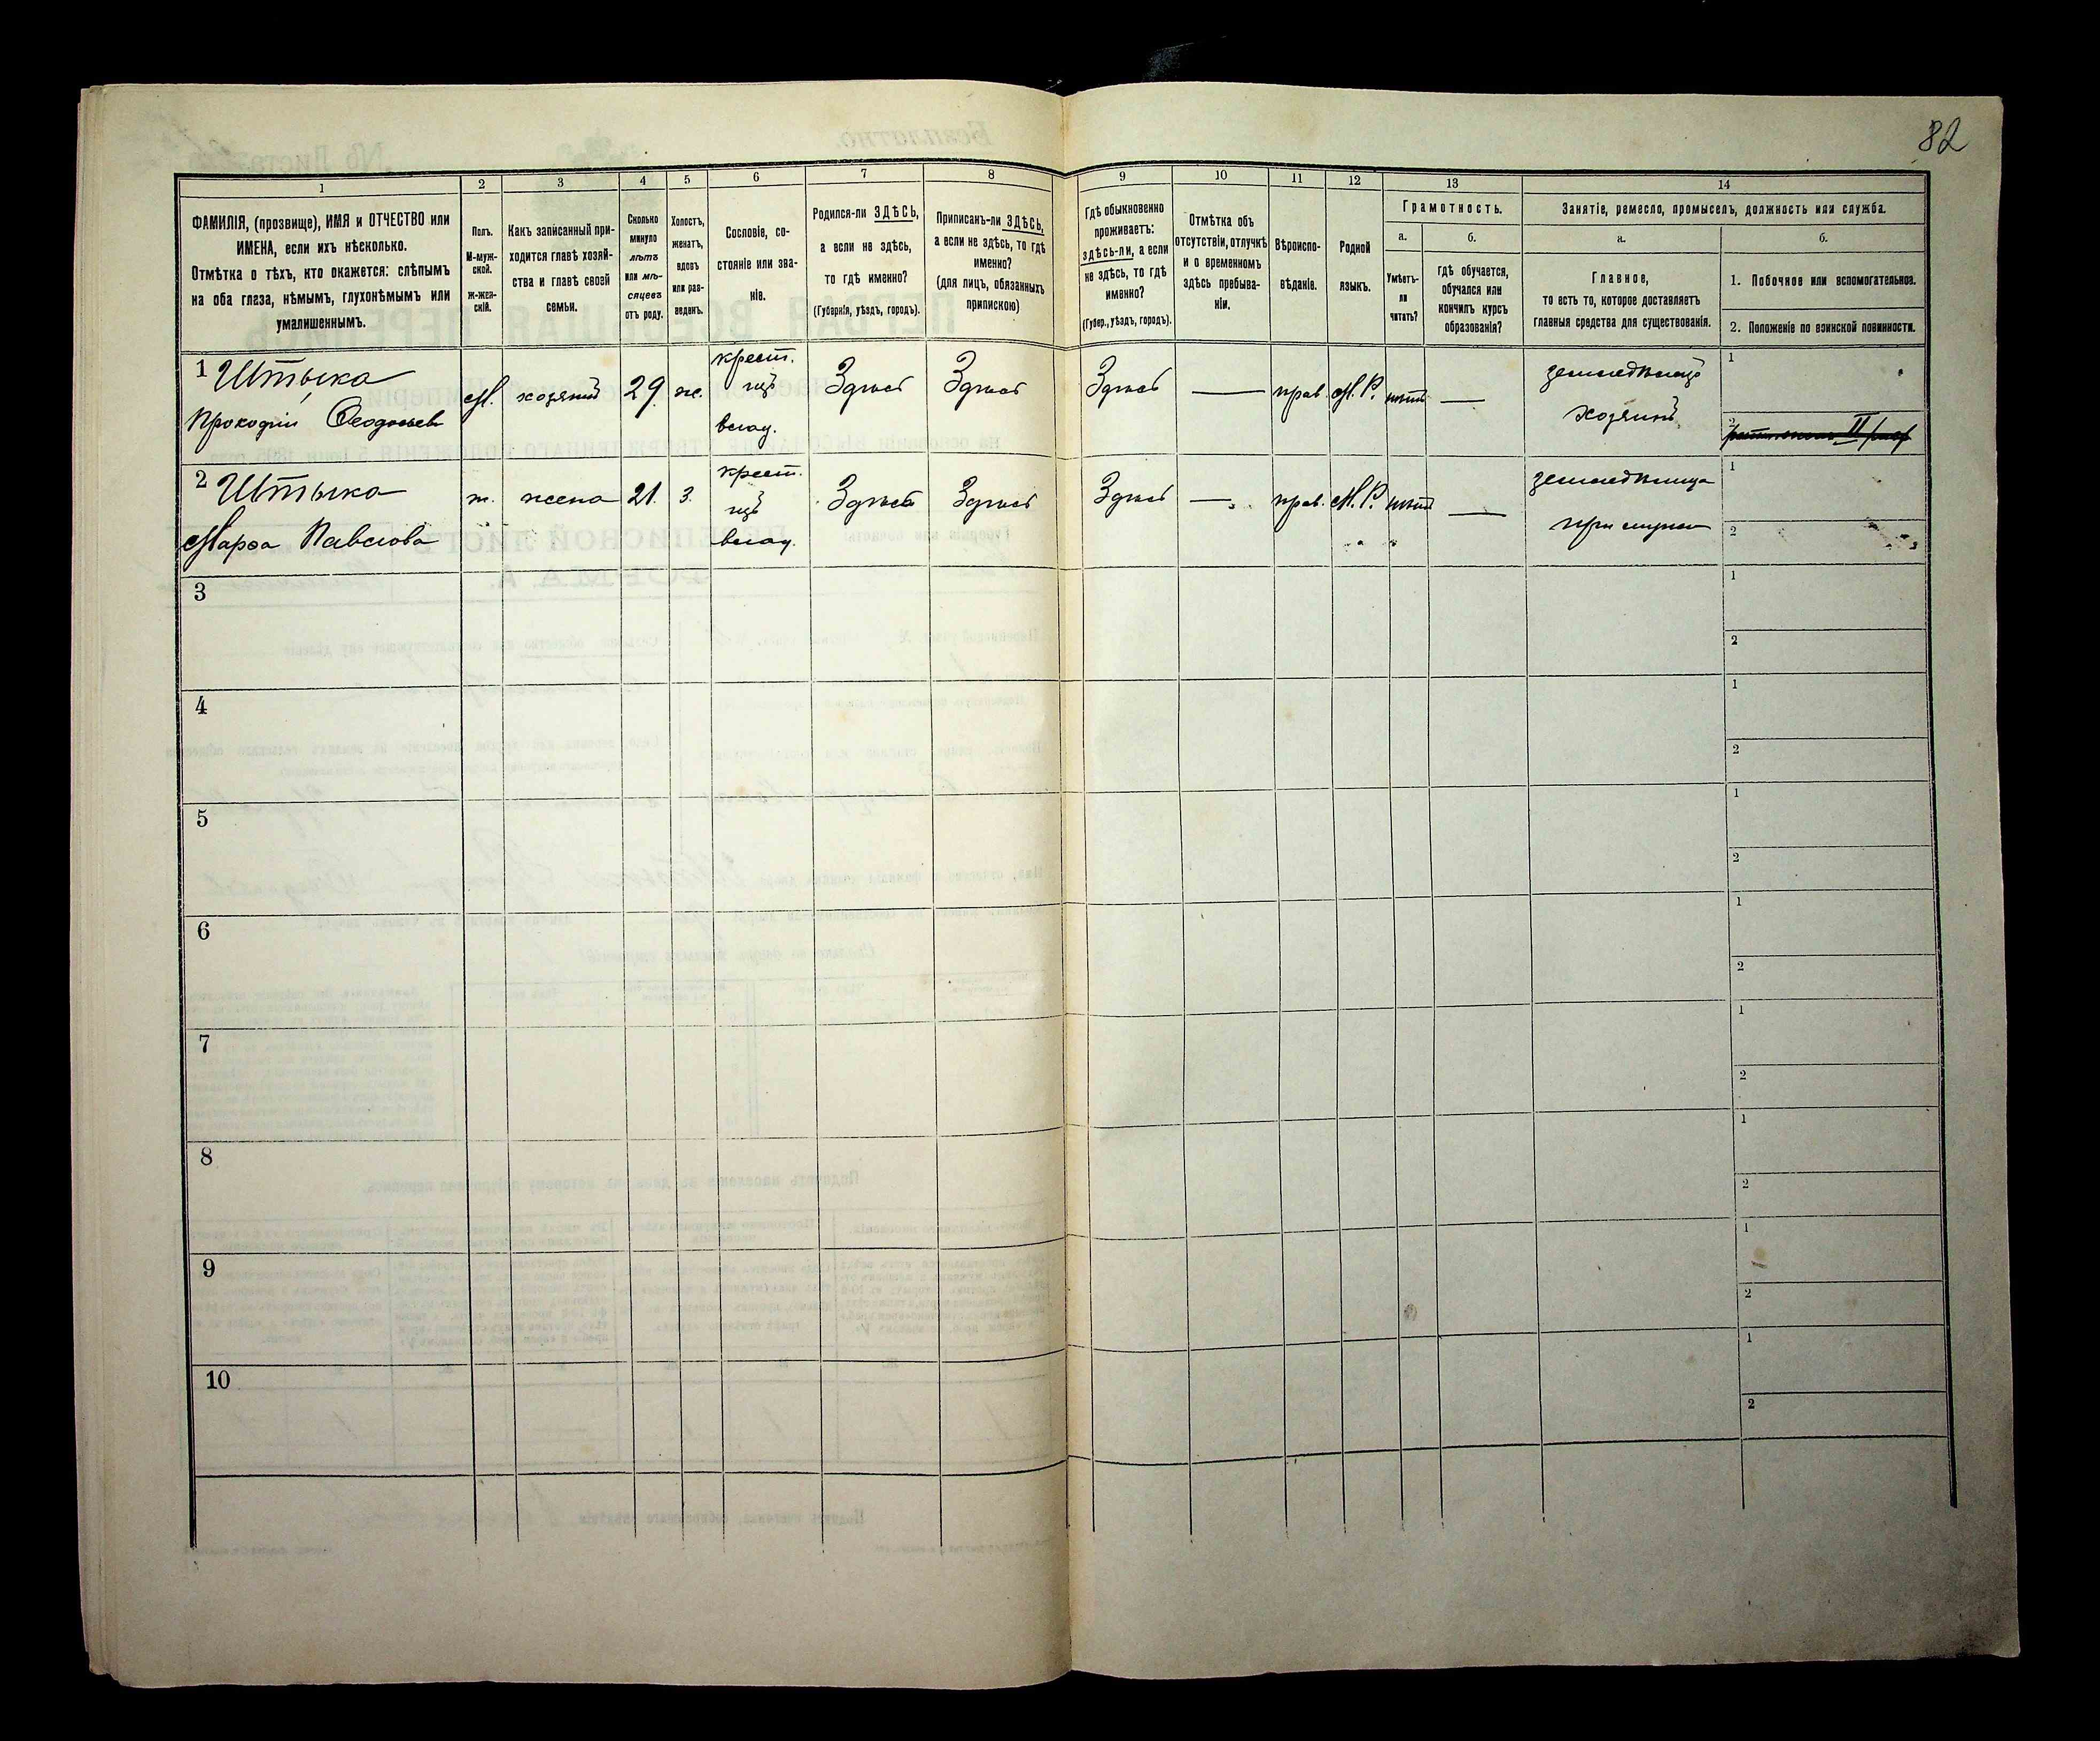 82
1 2 3 4 5 6 7 8 9 10 11 12 13 14
ФАМИЛІЯ, (прозвище), ИМЯ и ОТЧЕСТВО или
ИМЕНА, если ихъ нѣсколько.
Отмѣтка о тѣхъ, кто окажется: слѣпымъ
на оба глаза, нѣмымъ, глухонѣмымъ или
умалишеннымъ.
Полъ.
М-муж-
ской.
ж-жен-
скій.
Какъ записанный при-
ходится главѣ хозяй-
ства и главѣ своей
семьи.
Сколько
минуло
лѣтъ
или мѣ-
сяцевъ
отъ роду.
Холостъ,
женатъ,
вдовъ
или раз-
веденъ.
Сословіе, со-
стояніе или зва-
ніе.
Родился-ли ЗДѢСЬ,
а если не здѣсь,
то гдѣ именно?
(Губернія, уѣздъ, городъ).
Приписанъ-ли ЗДѢСЬ,
а если не здѣсь, то гдѣ
именно?
(для лицъ, обязанныхъ
припискою)
Гдѣ обыкновенно
проживаетъ:
здѣсь-ли, а если
не здѣсь, то гдѣ
именно?
(Губер., уѣздъ, городъ).
Отмѣтка объ
отсутствіи, отлучкѣ
и о временномъ
здѣсь пребыва-
ніи.
Вѣроиспо-
вѣданіе.
Родной
языкъ.
Грамотность.
а.
Умѣетъ-
ли
читать?
б.
гдѣ обучается,
обучался или
кончилъ курсъ
образованія?
Занятіе, ремесло, промыселъ, должность или служба.
а.
Главное,
то есть то, которое доставляетъ
главныя средства для существованія.
б.
1. Побочное или вспомогательное.
2. Положеніе по воинской повинности.
1 Штыка
Прокофій Ѳеодосьев
М. хозяинъ 29 ж.
крест.
изъ
влад.
Здѣсь Здѣсь Здѣсь — прав. М. Р. нѣтъ —
земледѣлецъ
хозяинъ
1
2
2 Штыка
Марѳа Павлова
ж. жена 21. з.
крест.
изъ
влад.
Здѣсь Здѣсь Здѣсь — прав. М. Р. нѣтъ —
земледѣлица
при мужѣ
1
2
3
1
2
4
1
2
5
1
2
6
1
2
7
1
2
8
1
2
9
1
2
10
1
2